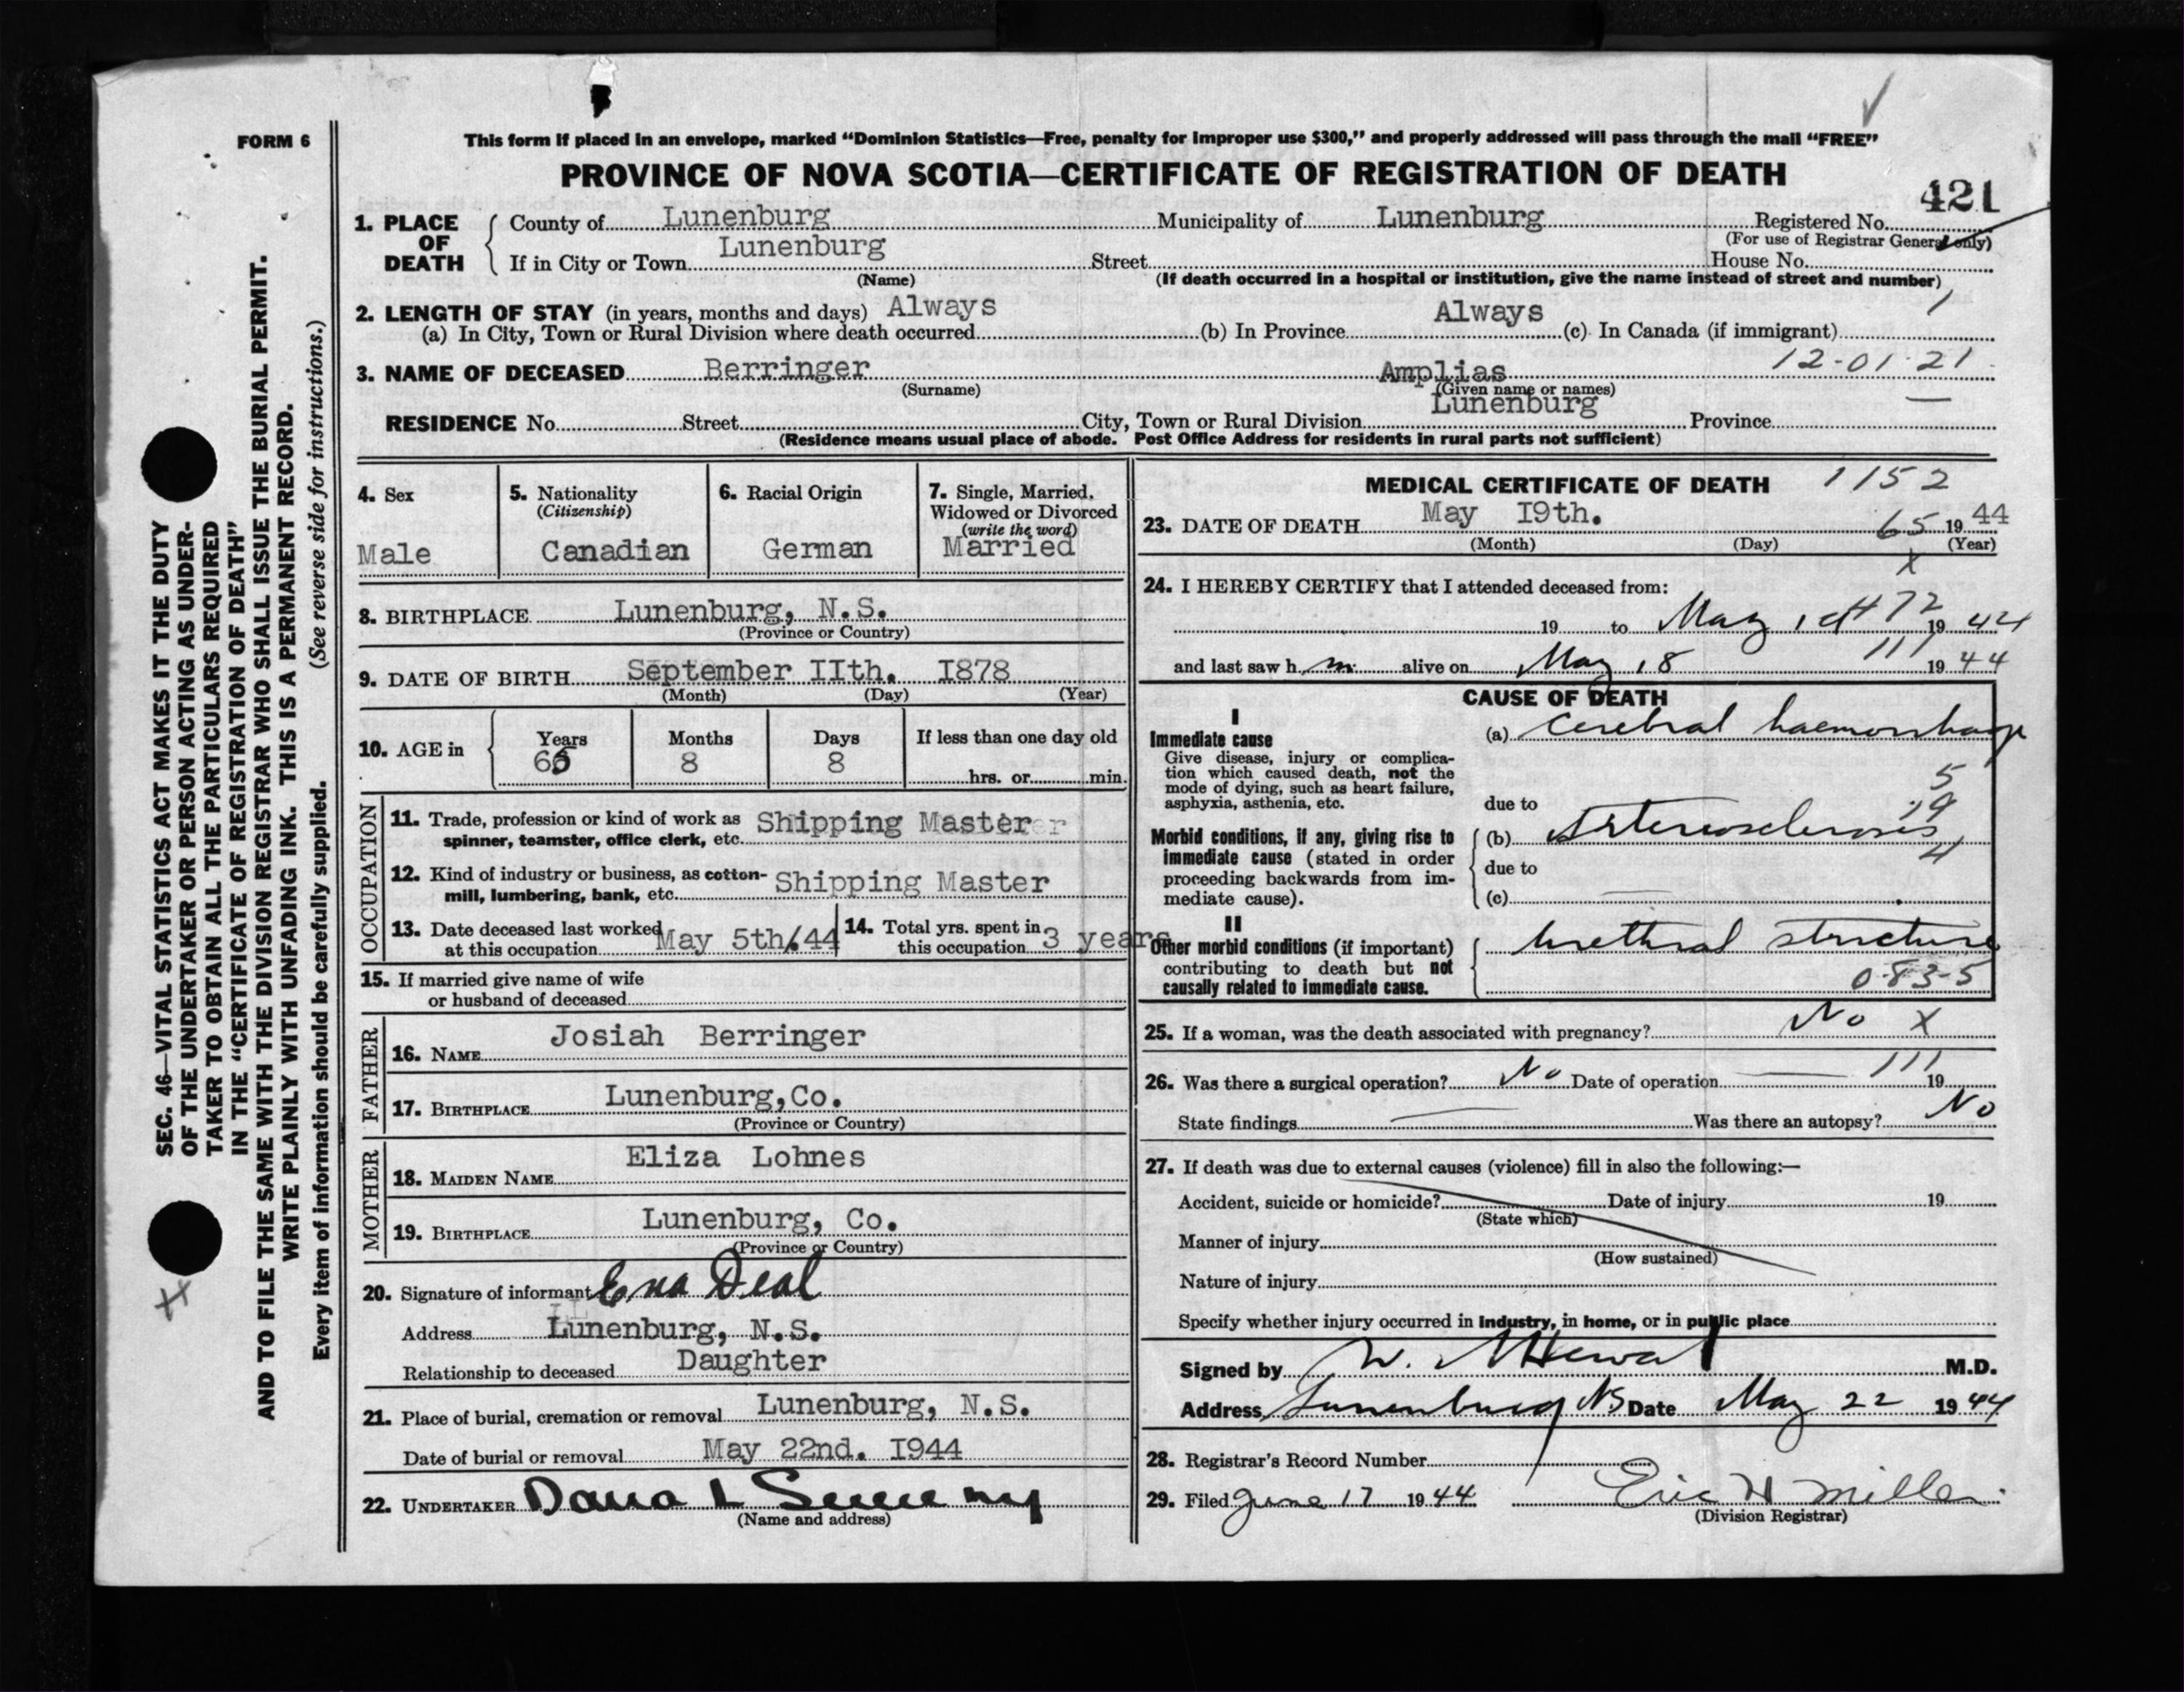 FORM 6
This form if placed in an envelope, marked “Dominion Statistics—Free, penalty for improper use $300,” and properly addressed will pass through the mail “FREE”
PROVINCE OF NOVA SCOTIA—CERTIFICATE OF REGISTRATION OF DEATH
421
1. PLACE OF DEATH
County of Lunenburg Municipality of Lunenburg Registered No.
(For use of Registrar General only)
If in City or Town Lunenburg Street House No.
(Name) (If death occurred in a hospital or institution, give the name instead of street and number)
2. LENGTH OF STAY (in years, months and days) Always Always 1
(a) In City, Town or Rural Division where death occurred (b) In Province (c) In Canada (if immigrant)
3. NAME OF DECEASED Berringer Amplias 12-01-21
(Surname) (Given name or names)
RESIDENCE No. Street City, Town or Rural Division Lunenburg Province
(Residence means usual place of abode. Post Office Address for residents in rural parts not sufficient)
4. Sex
Male
5. Nationality
(Citizenship)
Canadian
6. Racial Origin
German
7. Single, Married, Widowed or Divorced
(write the word)
Married
8. BIRTHPLACE Lunenburg, N.S.
(Province or Country)
9. DATE OF BIRTH September IIth. I878
(Month) (Day) (Year)
10. AGE in Years Months Days If less than one day old
65 8 8 hrs. or min.
OCCUPATION
11. Trade, profession or kind of work as Shipping Master
spinner, teamster, office clerk, etc.
12. Kind of industry or business, as cotton- Shipping Master
mill, lumbering, bank, etc.
13. Date deceased last worked
at this occupation May 5th/.44
14. Total yrs. spent in
this occupation 3 years
15. If married give name of wife
or husband of deceased
FATHER
16. NAME Josiah Berringer
17. BIRTHPLACE Lunenburg,Co.
(Province or Country)
MOTHER
18. MAIDEN NAME Eliza Lohnes
19. BIRTHPLACE Lunenburg, Co.
(Province or Country)
20. Signature of informant Ena Deal
Address Lunenburg, N.S.
Relationship to deceased Daughter
21. Place of burial, cremation or removal Lunenburg, N.S.
Date of burial or removal May 22nd. I944
22. UNDERTAKER
(Name and address)
MEDICAL CERTIFICATE OF DEATH 1152
23. DATE OF DEATH May I9th. 65 19 44
(Month) (Day) (Year)
X
24. I HEREBY CERTIFY that I attended deceased from:
19 to May 72 19 44
and last saw h m alive on May 18 111 19 44
CAUSE OF DEATH
I
Immediate cause
Give disease, injury or complica-
tion which caused death, not the
mode of dying, such as heart failure,
asphyxia, asthenia, etc.
(a) Cerebral haemorrhage
due to
Morbid conditions, if any, giving rise to
immediate cause (stated in order
proceeding backwards from im-
mediate cause).
(b) Arteriosclerosis
due to
(c)
II
Other morbid conditions (if important)
contributing to death but not
causally related to immediate cause.
Urethral stricture
0-83-5
25. If a woman, was the death associated with pregnancy? No X
26. Was there a surgical operation? No Date of operation 111 19
State findings Was there an autopsy? No
27. If death was due to external causes (violence) fill in also the following:—
Accident, suicide or homicide? Date of injury 19
(State which)
Manner of injury
(How sustained)
Nature of injury
Specify whether injury occurred in industry, in home, or in public place
Signed by M.D.
Address Lunenburg NS Date May 22 19 44
28. Registrar's Record Number
29. Filed June 17 19 44 Eric H Miller
(Division Registrar)
SEC. 46—VITAL STATISTICS ACT MAKES IT THE DUTY
OF THE UNDERTAKER OR PERSON ACTING AS UNDER-
TAKER TO OBTAIN ALL THE PARTICULARS REQUIRED
IN THE “CERTIFICATE OF REGISTRATION OF DEATH”
AND TO FILE THE SAME WITH THE DIVISION REGISTRAR WHO SHALL ISSUE THE BURIAL PERMIT.
WRITE PLAINLY WITH UNFADING INK. THIS IS A PERMANENT RECORD.
Every item of information should be carefully supplied. (See reverse side for instructions.)